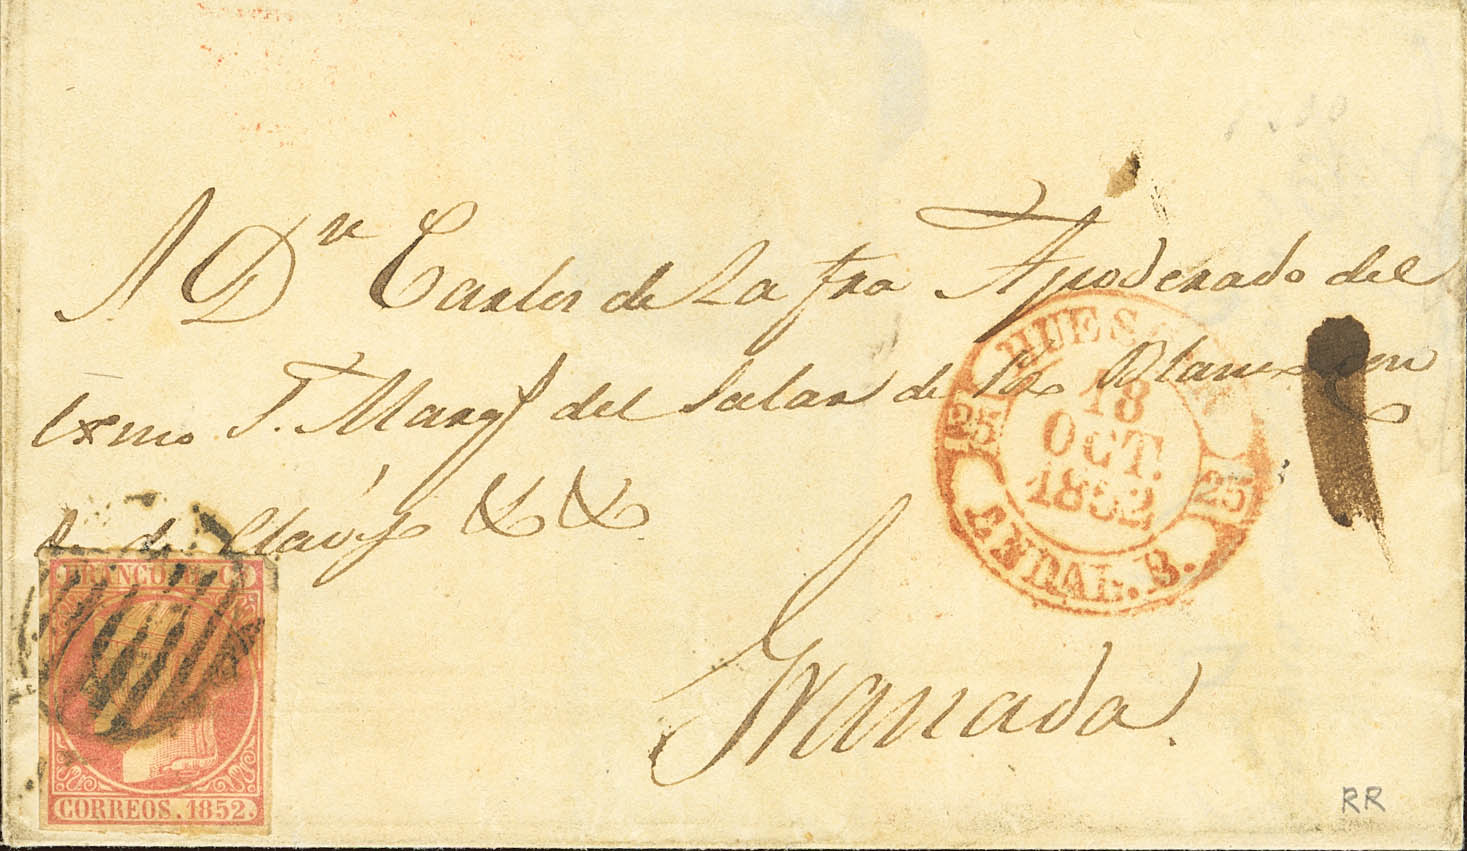 A Dn Carlos de La fra Apoderado del
Exmo S. Marqs del Salar de
&c &c
Granada.
HUESCAR
18
OCT.
1852
25 25
ANDAL. B.
FRANCO
CORREOS. 1852.
RR